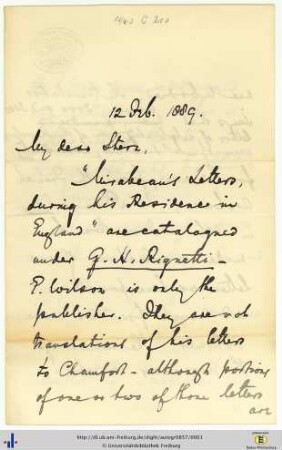 12 Feb. 1889.
My dear Stern,
"Mirabeau's Letters,
during his Residence in
England" are catalogued
under G. H. Riquetti -
E. Wilson is only the
publisher. They are not
translations of his letters
to Chamfort - although portions
of one or two of those letters
are
http://dl.ub.uni-freiburg.de/diglit/autogr0857/0001
© Universitätsbibliothek Freiburg